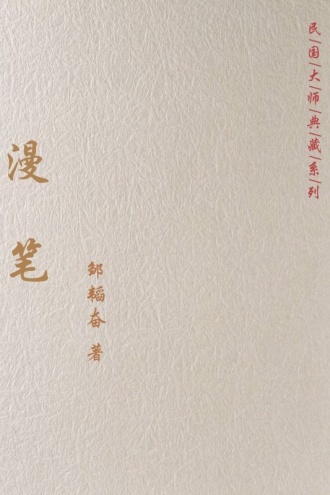 民国大师典藏系列
漫笔
邹韬奋 著